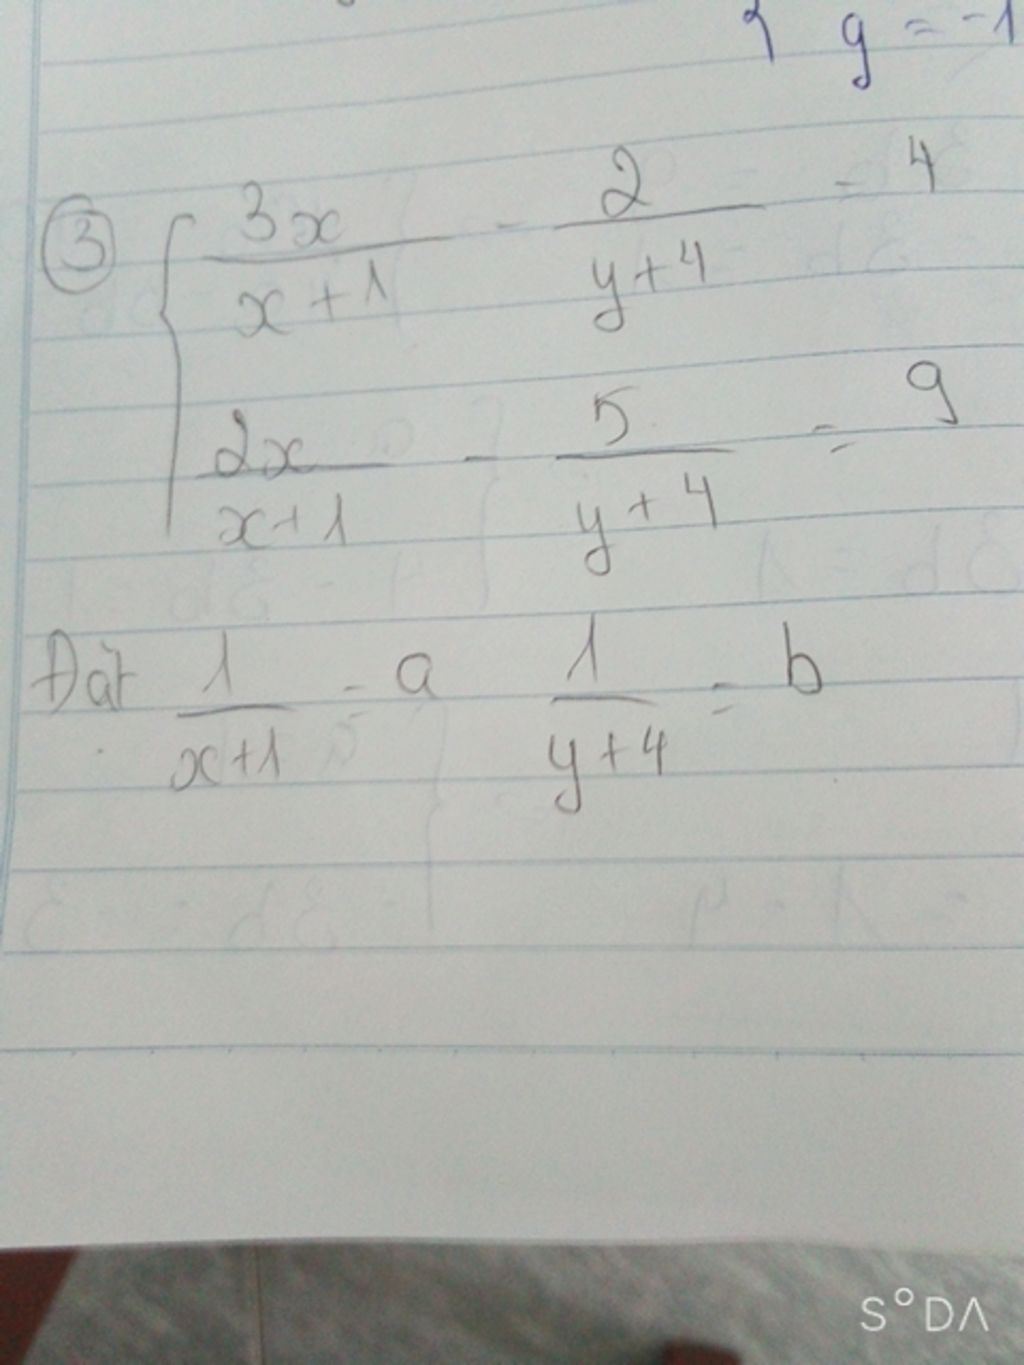 y = -1
③ { 3x/(x+1) - 2/(y+4) = 4
2x/(x+1) - 5/(y+4) = 9
Đặt 1/(x+1) = a 1/(y+4) = b
S°DΛ